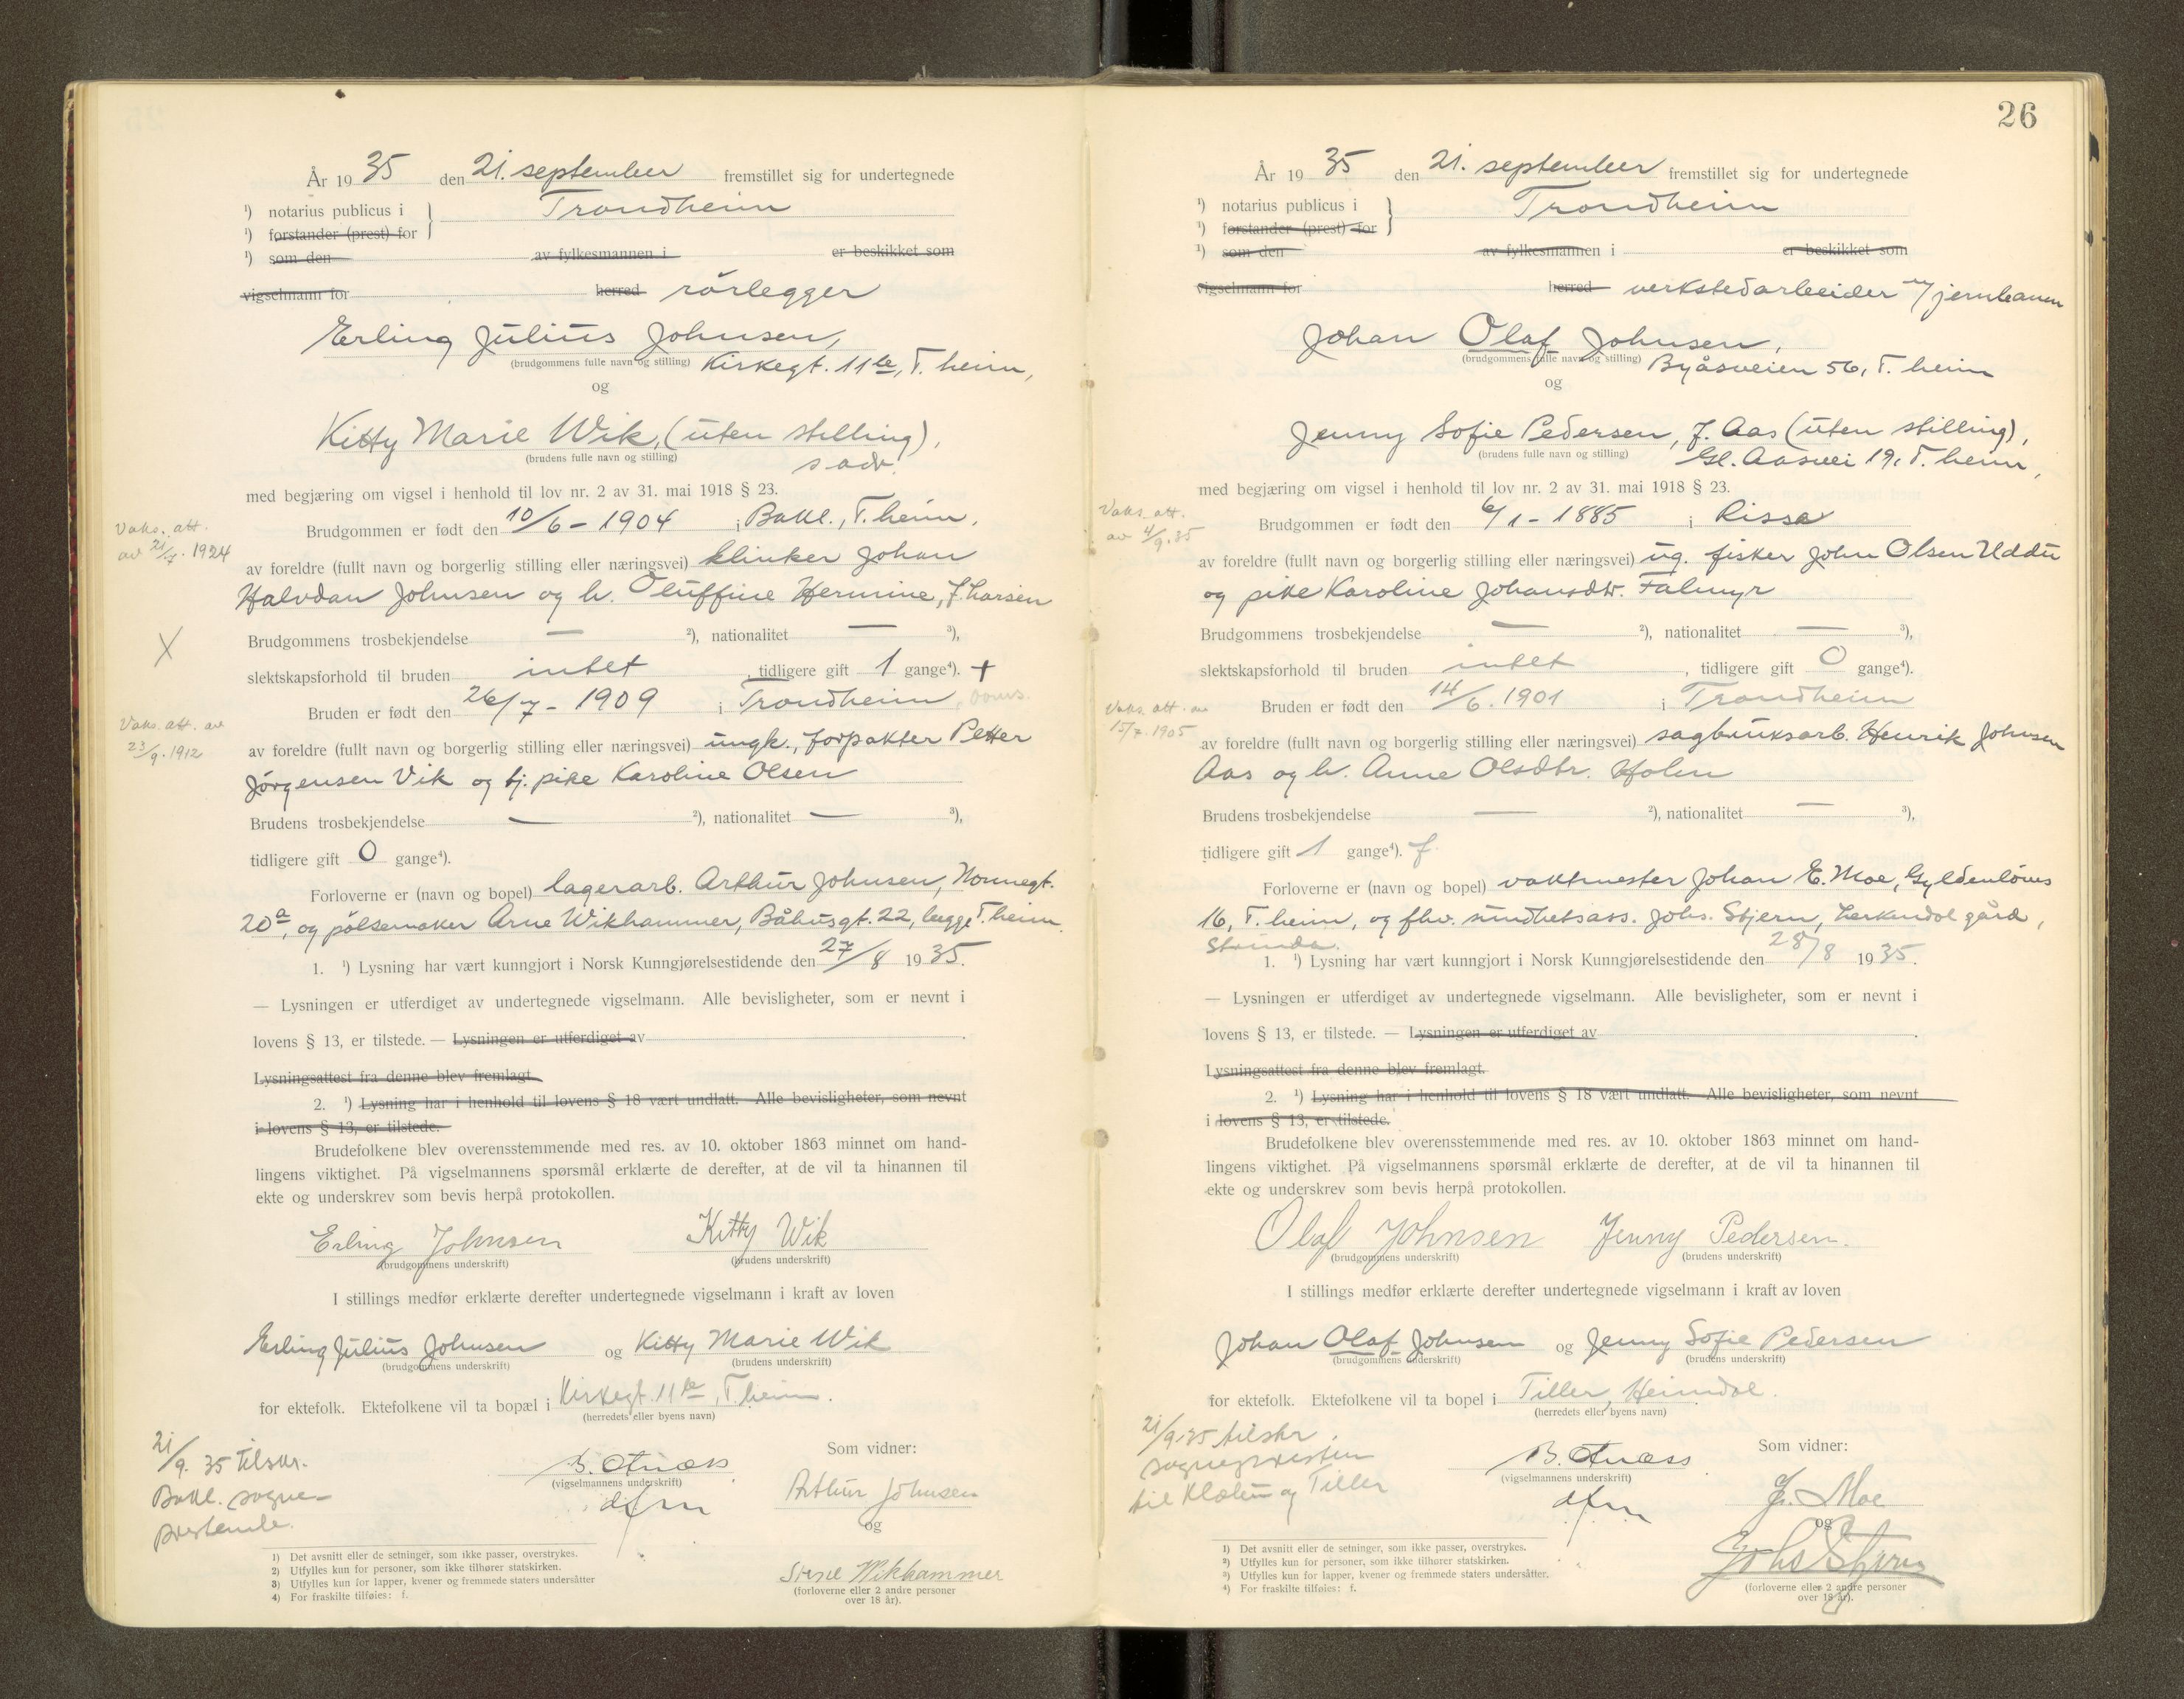 År 1935 den 21. september fremstillet sig for undertegnede
¹) notarius publicus i } Trondheim
¹) forstander (prest) for
¹) som den av fylkesmannen i er beskikket som
vigselmann for herred rörlegger
Erling Julius Johnsen,
(brudgommens fulle navn og stilling) Kirkegt. 11 b, T.heim,
og
Kitty Marie Wik, (uten stilling),
(brudens fulle navn og stilling) s adr.
med begjæring om vigsel i henhold til lov nr. 2 av 31. mai 1918 § 23.
Vaks. att.
av 21/7. 1924
Brudgommen er født den 10/6 - 1904 i Bakl., T.heim,
av foreldre (fullt navn og borgerlig stilling eller næringsvei) klinker Johan
Halvdan Johnsen og h. Oluffine Hermine, f. Larsen
X
Brudgommens trosbekjendelse — ²), nationalitet — ³),
slektskapsforhold til bruden intet, tidligere gift 1 gange⁴). +
Bruden er født den 26/7 - 1909 i Trondheim,
Vaks. att. av
23/9. 1912
av foreldre (fullt navn og borgerlig stilling eller næringsvei) ungk., forpakter Petter
Jörgensen Vik og tj. pike Karoline Olsen
Brudens trosbekjendelse — ²), nationalitet — ³),
tidligere gift 0 gange⁴).
Forloverne er (navn og bopel) lagerarb. Arthur Johnsen, Nonnegt.
20 a, og pölsemaker Arne Wikhammer, Båhusgt. 22, begge T.heim.
1. ¹) Lysning har vært kunngjort i Norsk Kunngjørelsestidende den 27/8 1935.
— Lysningen er utferdiget av undertegnede vigselmann. Alle bevisligheter, som er nevnt i
lovens § 13, er tilstede. — Lysningen er utferdiget av
Lysningsattest fra denne blev fremlagt
2. ¹) Lysning har i henhold til lovens § 18 vært undlatt. Alle bevisligheter, som nevnt
i lovens § 13, er tilstede.
Brudefolkene blev overensstemmende med res. av 10. oktober 1863 minnet om hand-
lingens viktighet. På vigselmannens spørsmål erklærte de derefter, at de vil ta hinannen til
ekte og underskrev som bevis herpå protokollen.
Erling Johnsen Kitty Wik
(brudgommens underskrift) (brudens underskrift)
I stillings medfør erklærte derefter undertegnede vigselmann i kraft av loven
Erling Julius Johnsen og Kitty Marie Wik
(brudgommens underskrift) (brudens underskrift)
for ektefolk. Ektefolkene vil ta bopæl i Kirkegt. 11 b, T.heim.
(herredets eller byens navn)
21/9. 35 tilskr.
Bakl. sogne-
prestemb.
Som vidner:
(vigselmannens underskrift)
Arthur Johnsen
og
Wikhammer
(forloverne eller 2 andre personer
over 18 år).
1) Det avsnitt eller de setninger, som ikke passer, overstrykes.
2) Utfylles kun for personer, som ikke tilhører statskirken.
3) Utfylles kun for lapper, kvener og fremmede staters undersåtter
4) For fraskilte tilføies: f.
26
År 1935 den 21. september fremstillet sig for undertegnede
¹) notarius publicus i } Trondheim
¹) forstander (prest) for
¹) som den av fylkesmannen i er beskikket som
vigselmann for herred verkstedarbeider v/ jernbanen
Johan Olaf Johnsen,
(brudgommens fulle navn og stilling) Byåsveien 56, T.heim
og
Jenny Sofie Pedersen, f. Aas (uten stilling),
(brudens fulle navn og stilling) Gl. Aasvei 19, T.heim,
med begjæring om vigsel i henhold til lov nr. 2 av 31. mai 1918 § 23.
Vaks. att.
av 4/9.35
Brudgommen er født den 6/1 - 1885 i Rissa
av foreldre (fullt navn og borgerlig stilling eller næringsvei) ug. fisker John Olsen Uddu
og pike Karoline Johansdtr. Falmyr
Brudgommens trosbekjendelse — ²), nationalitet — ³),
slektskapsforhold til bruden intet, tidligere gift 0 gange⁴).
Vaks. att. av
15/7. 1905
Bruden er født den 14/6. 1901 i Trondheim
av foreldre (fullt navn og borgerlig stilling eller næringsvei) sagbruksarb. Henrik Johnsen
Aas og h. Anne Olsdtr. Holen
Brudens trosbekjendelse — ²), nationalitet — ³),
tidligere gift 1 gange⁴). f.
Forloverne er (navn og bopel) vaktmester Johan E. Moe, Gyldenlöves
16, T.heim, og fhv. sundhetsass. Johs. Stjern, Lerkendal gård,
Strinda.
1. ¹) Lysning har vært kunngjort i Norsk Kunngjørelsestidende den 28/8 1935.
— Lysningen er utferdiget av undertegnede vigselmann. Alle bevisligheter, som er nevnt i
lovens § 13, er tilstede. — Lysningen er utferdiget av
Lysningsattest fra denne blev fremlagt.
2. ¹) Lysning har i henhold til lovens § 18 vært undlatt. Alle bevisligheter, som nevnt
i lovens § 13, er tilstede.
Brudefolkene blev overensstemmende med res. av 10. oktober 1863 minnet om hand-
lingens viktighet. På vigselmannens spørsmål erklærte de derefter, at de vil ta hinannen til
ekte og underskrev som bevis herpå protokollen.
Olaf Johnsen Jenny Pedersen.
(brudgommens underskrift) (brudens underskrift)
I stillings medfør erklærte derefter undertegnede vigselmann i kraft av loven
Johan Olaf Johnsen og Jenny Sofie Pedersen
(brudgommens underskrift) (brudens underskrift)
for ektefolk. Ektefolkene vil ta bopel i Tiller, Heimdal.
(herredets eller byens navn)
21/9.35 tilskr.
sognepresten
til Klæbu og Tiller
Som vidner:
(vigselmannens underskrift)
J. Moe
og
Johs Stjern
(forloverne eller 2 andre personer
over 18 år).
1) Det avsnitt eller de setninger, som ikke passer, overstrykes.
2) Utfylles kun for personer, som ikke tilhører statskirken.
3) Utfylles kun for lapper, kvener og fremmede staters undersåtter.
4) For fraskilte tilføies: f.